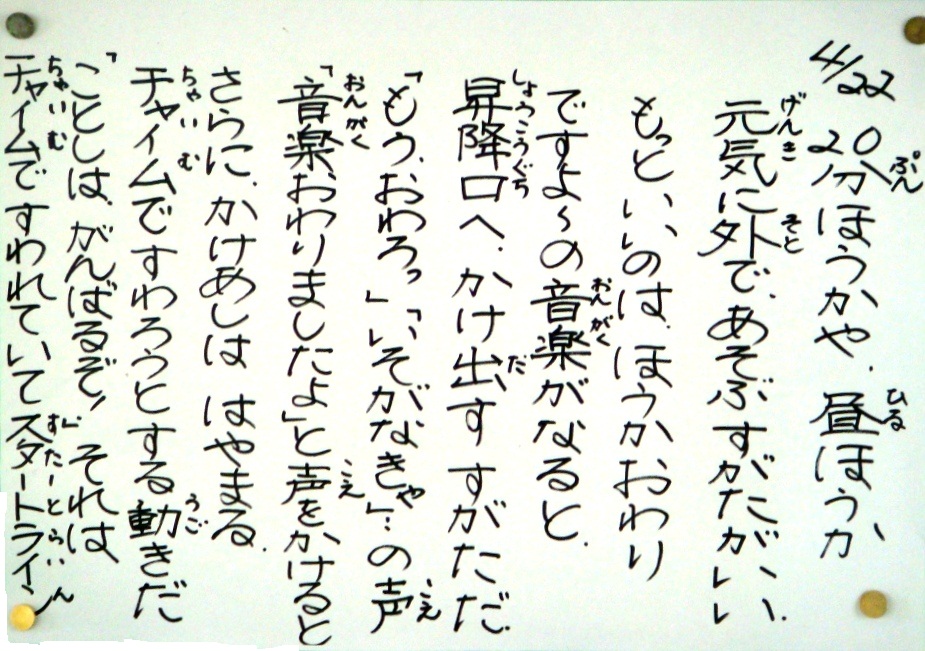 4/22 20分ほうかや、昼ほうか、
元気に外で、あそぶすがたがいい。
もっと、いいのは、ほうかおわり
ですよ〜の音楽がなると、
昇降口へ、かけ出すすがただ。
「もう、おわろっ」「いそがなきゃ」…の声
「音楽おわりましたよ」と声をかけると
さらに、かけあしは はやまる。
チャイムですわろうとする動きだ
「ことしは、がんばるぞ!」それは、
チャイムですわれていてスタートライン